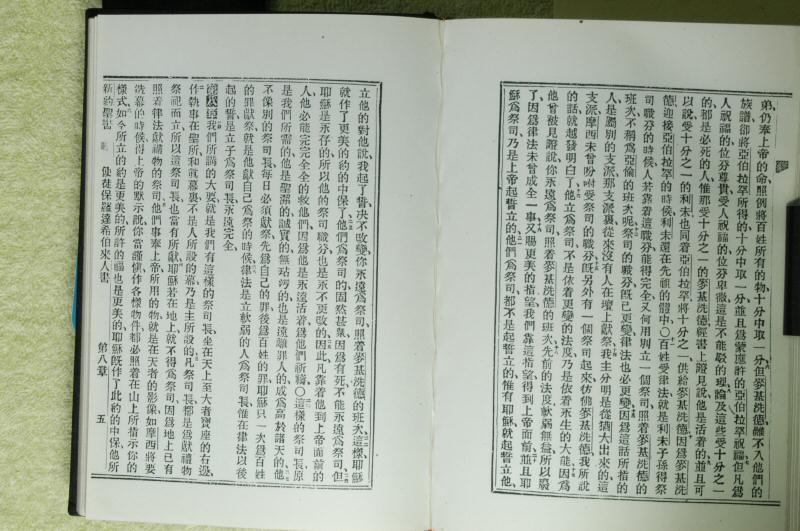 弟仍奉上帝的命照例將百姓所有的物十分中取一分但麥基洗德雖不入他們的
族譜卻將亞伯拉罕所得的十分中取一分並且爲蒙應許的亞伯拉罕祝福但凡爲
人祝福的位分尊貴受人祝福的位分卑微這是不能駁的理論及這些受十分一
的都是必死的人惟那受十分之一的麥基洗德經書上證見說他是活着的並且可
以說受十分之一的利未也同着亞伯拉罕將十分之一供給麥基洗德因爲麥基洗
德迎接亞伯拉罕的時候利未還在先祖的體中〇百姓受律法就是利未子孫得祭
司職分的時候人若靠着這職分能得完全又何用別立一個祭司照着麥基洗德的
班次不稱爲亞倫的班次呢祭司的職分旣已更變律法也必更變因爲這話所指的
人是屬別的支派那支派裏從來沒有人在壇上獻祭我主分明是從猶大出來的這
支派摩西未曾吩咐受祭司的職分旣另外有一個祭司起來彷彿麥基洗德我所說
的話就越發明白了他立爲祭司不是依着更變的法度乃是依着永生的大能因爲
他曾被見證說你永遠爲祭司照着麥基洗德的班次先前的法度軟弱無益所以廢
了因爲律法未曾成全一事又賜更美的指望我們靠這指望得到上帝面前並且耶
穌爲祭司乃是上帝起誓立的他們爲祭司都不是起誓立的惟有耶穌就起誓立他
立他的對他說我起了誓决不改變你永遠爲祭司照着麥基洗德的班次這樣耶穌
就作了更美的約的中保了他們爲祭司的固然甚衆因爲有死不能永遠爲祭司但
耶穌是永存的所以他的祭司職分也是永不更改的因此凡靠着他到上帝面前的
人他必能完完全全的救他們因爲他是永遠活着爲他們祈禱〇這樣的祭司長原
是我們所需的他是聖潔的誠實的無玷污的也是遠離罪人的成爲高於諸天的他
不像別的祭司長每日必須獻祭先爲自己的罪後爲百姓的罪耶穌只一次爲百姓
的罪獻祭就是他獻自己爲祭的時候律法是立軟弱的人爲祭司長惟在律法以後
起的誓是立子爲祭司長永遠完全
第八章我們所講的大要就是我們有這樣的祭司長坐在天上至大者寶座的右邊
作執事在聖所和眞幕裏不是人所設的幕乃是主所設的凡祭司長都是爲獻禮物
祭祀而立所以這祭司長也當有所獻耶穌若在地上就不得爲祭司因爲地上已有
照着律法獻禮物的祭司他們事奉上帝所用的物就是在天者的影像如摩西將要
造幕的時候得上帝的默示說你當謹愼作各樣物件都必照着在山上所指示你的
樣式如今所立的約是更美的所許的福也是更美的耶穌旣作了此約的中保他所
新約聖書 使徒保羅達希伯來人書 第八章 五